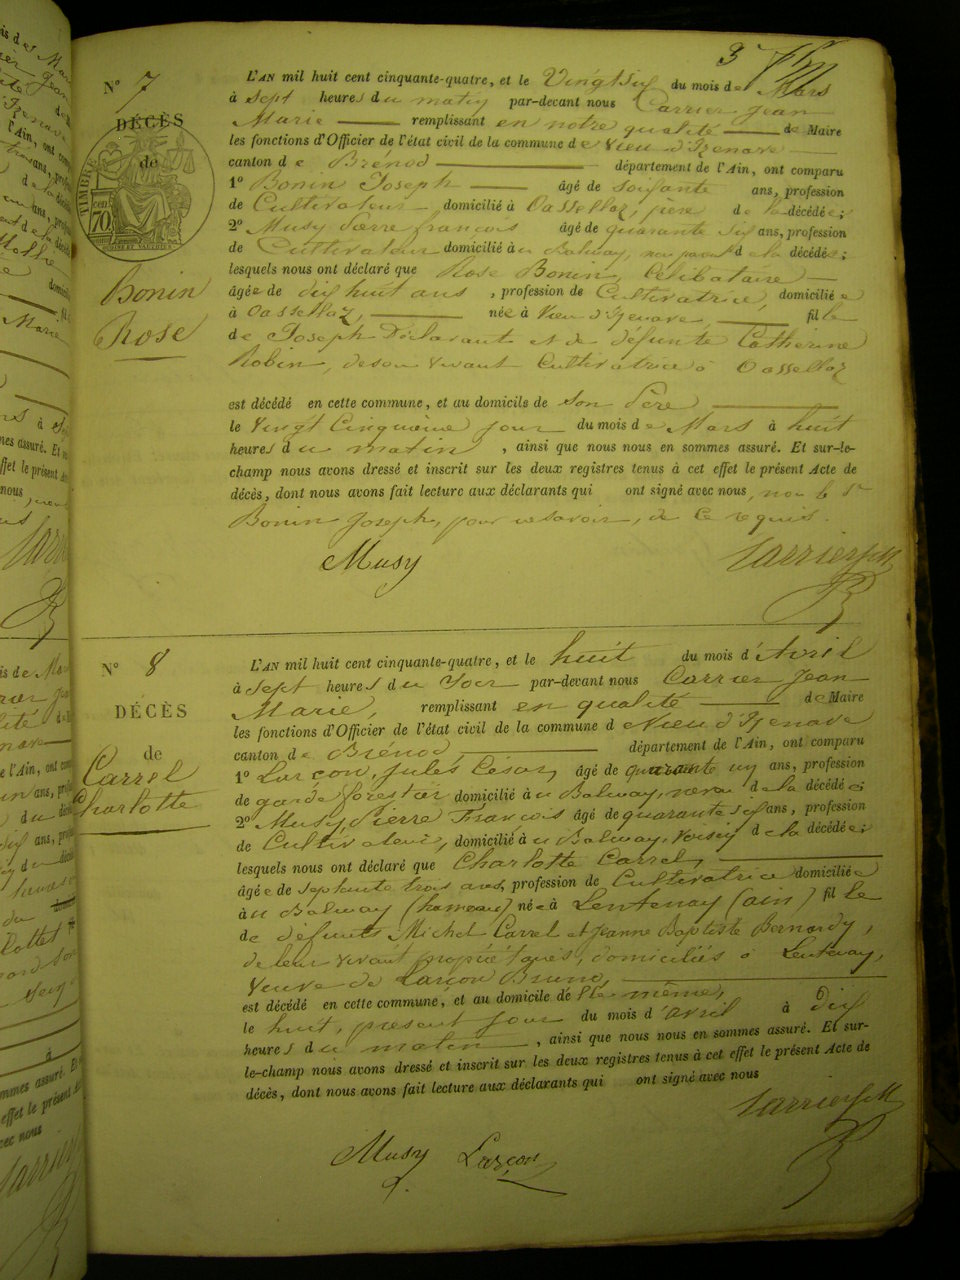 3
N° 7
DÉCÈS
de
TIMBRE
70
Bonin
Rose
L'AN mil huit cent cinquante-quatre, et le Vingt six du mois de Mars
à sept heures du matin par-devant nous Carrier Jean
Marie remplissant en notre qualité de Maire
les fonctions d'Officier de l'état civil de la commune de Vieu d'Izenave
canton de Brénod département de l'Ain, ont comparu
1° Bonin Joseph âgé de soixante ans, profession
de Cultivateur domicilié à Oassellaz, père de la décédée;
2° Musy Pierre françois âgé de quarante six ans, profession
de Cultivateur domicilié au Balmay, non parent de la décédée;
lesquels nous ont déclaré que Rose Bonin, Célibataire
âgée de dix huit ans, profession de Cultivatrice, domiciliée
à Oassellaz, née à Vieu d'Izenave, fille
de Joseph Déclarant et de défunte Catherine
Robin, de son vivant Cultivatrice à Oassellaz
est décédé en cette commune, et au domicile de son Père
le Vingt Cinquième jour du mois de Mars à huit
heures du matin, ainsi que nous nous en sommes assuré. Et sur-le-
champ nous avons dressé et inscrit sur les deux registres tenus à cet effet le présent Acte de
décès, dont nous avons fait lecture aux déclarants qui ont signé avec nous, non le Sr
Bonin Joseph, pour ne savoir, de ce requis.
Musy
N° 8
DÉCÈS
de
Carrel
Charlotte
L'AN mil huit cent cinquante-quatre, et le huit du mois d'Avril
à sept heures du soir par-devant nous Carrier Jean
Marie, remplissant en qualité de Maire
les fonctions d'Officier de l'état civil de la commune de Vieu d'Izenave
canton de Brénod département de l'Ain, ont comparu
1° Larçon, Jules César, âgé de quarante un ans, profession
de garde forestier domicilié au Balmay, neveu de la décédée;
2° Musy Pierre François âgé de quarante six ans, profession
de Cultivateur, domicilié au Balmay, voisin de la décédée;
lesquels nous ont déclaré que Charlotte Carrel,
âgée de septante trois ans, profession de Cultivatrice domiciliée
au Balmay (hameau) née à Lentenay (ain) fille
de défunts Michel Carrel et Jeanne Baptiste Bernardy,
de leur vivant propriétaires, domiciliés à Lentenay,
Veuve de Larçon Bruno,
est décédé en cette commune, et au domicile de Elle même,
le huit, présent jour du mois d'avril à dix
heures du matin, ainsi que nous nous en sommes assuré. Et sur-
le-champ nous avons dressé et inscrit sur les deux registres tenus à cet effet le présent Acte de
décès, dont nous avons fait lecture aux déclarants qui ont signé avec nous
Musy Larçon